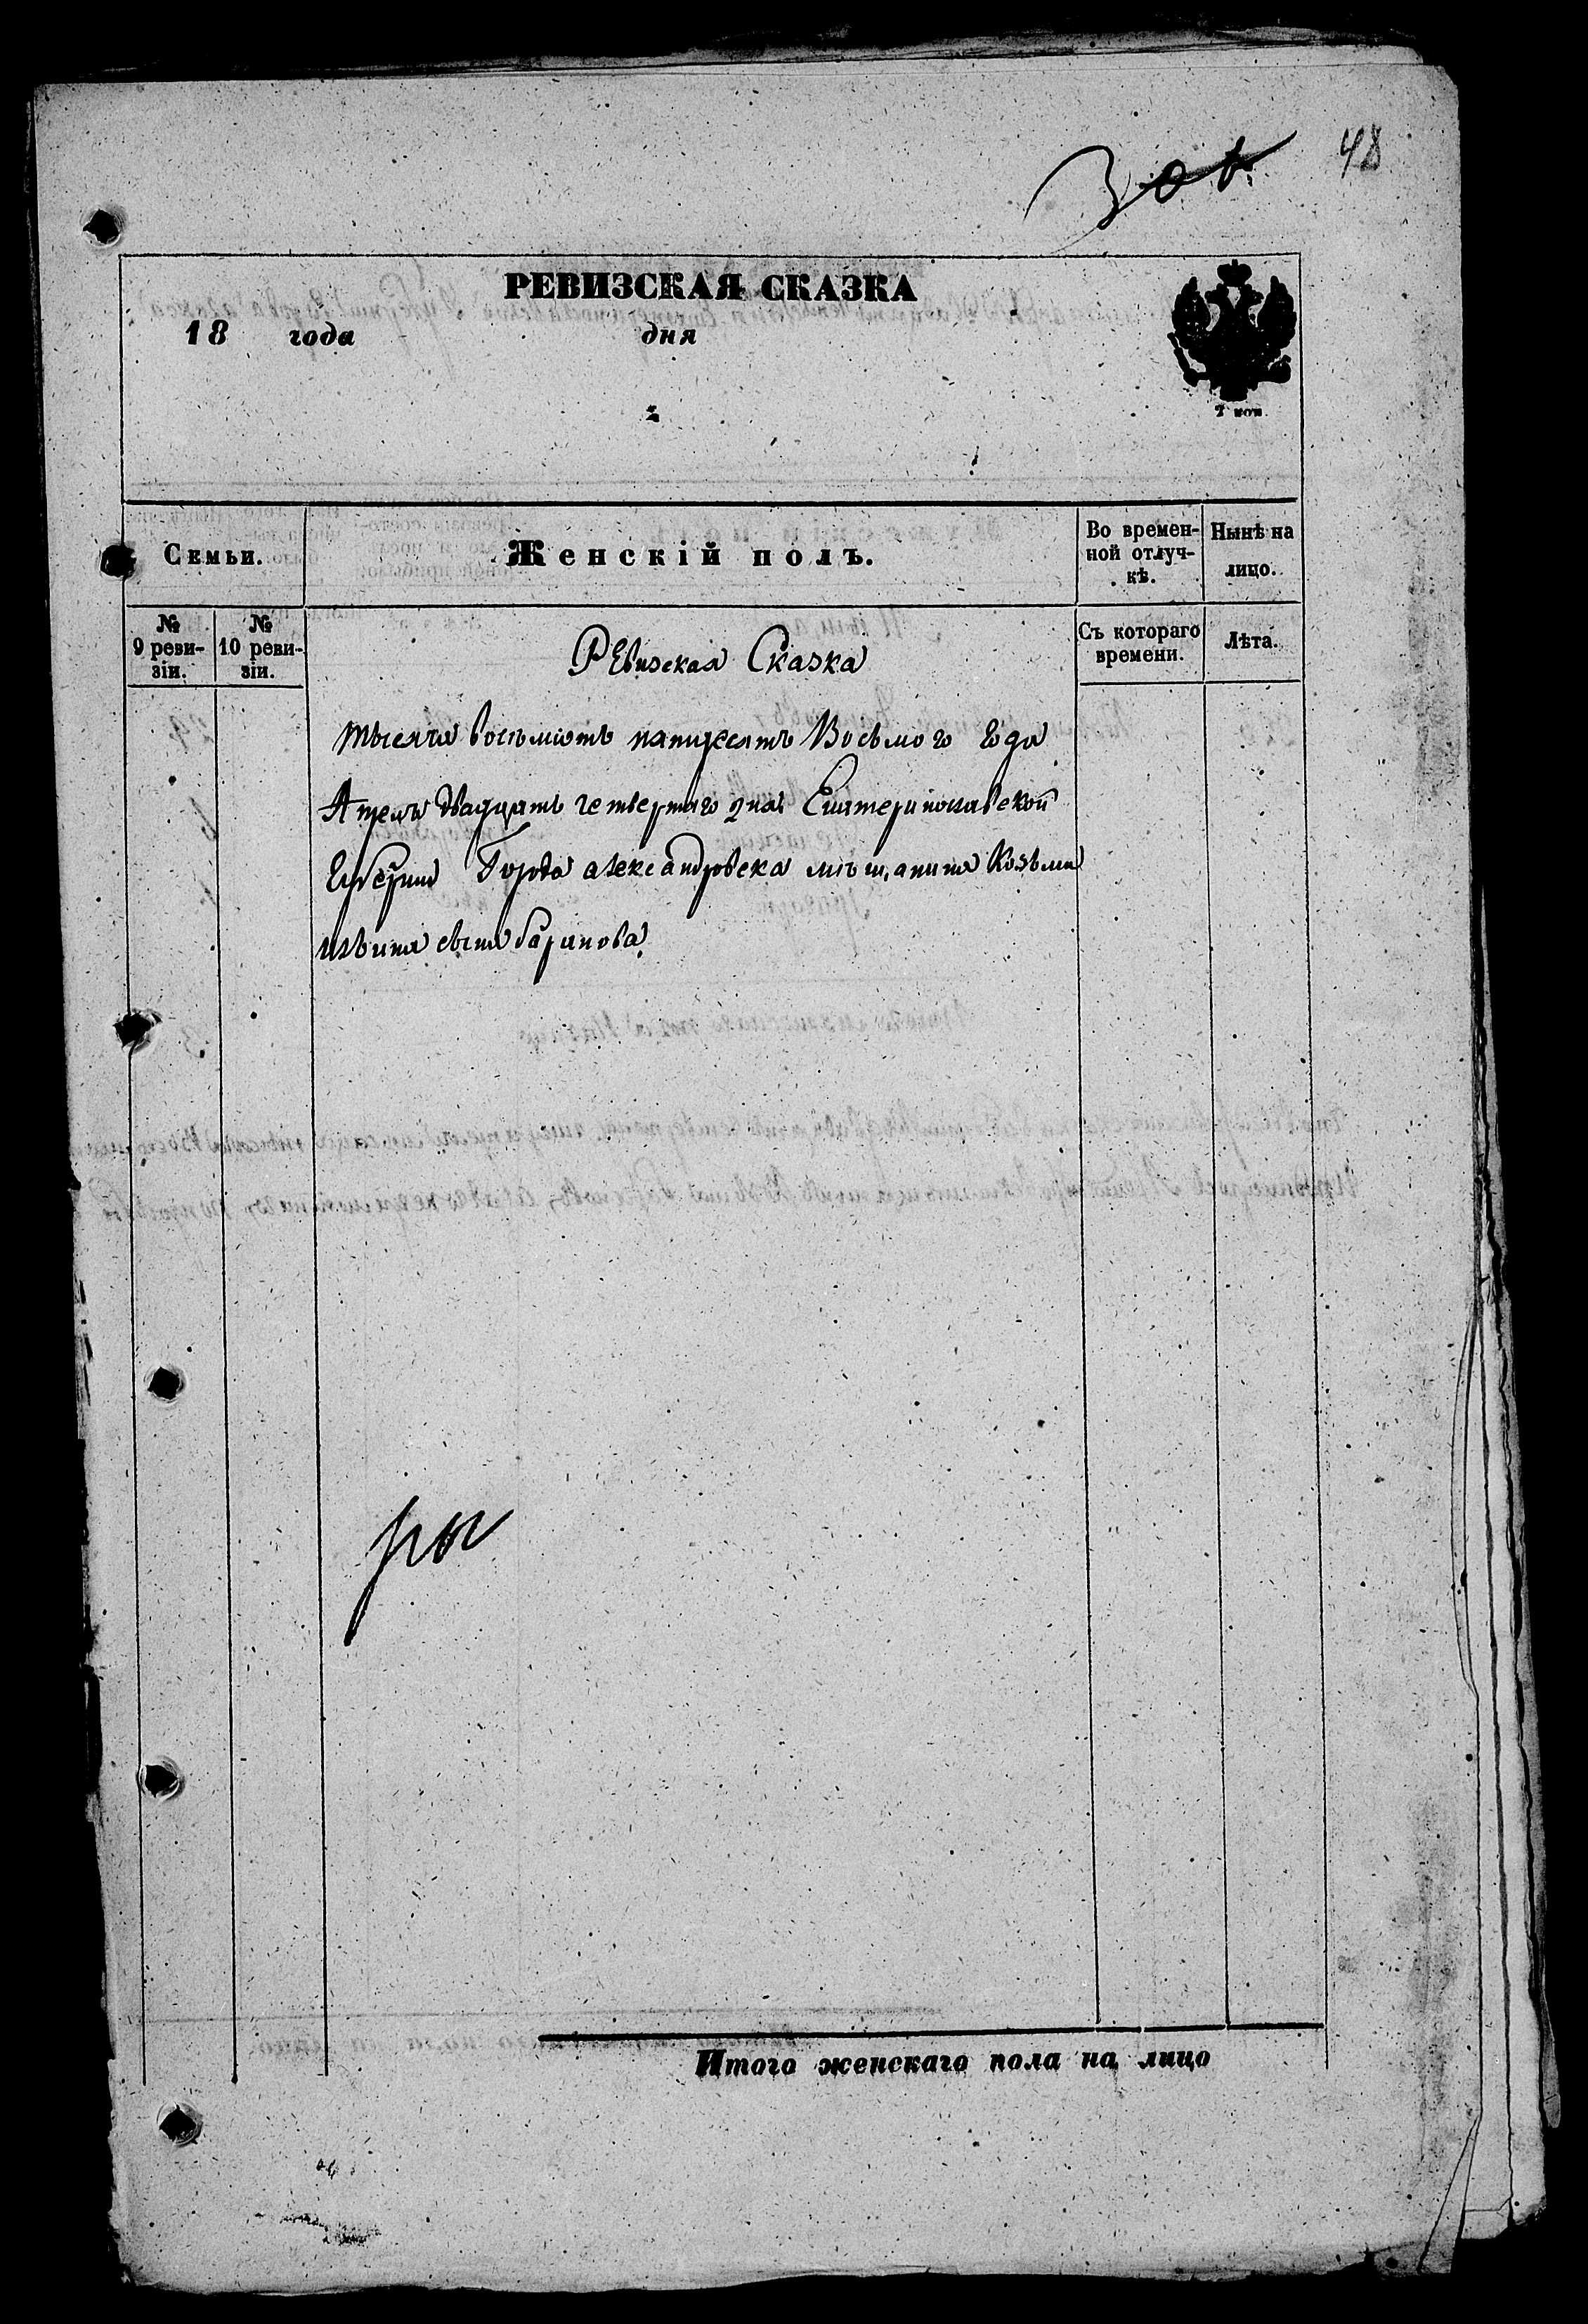 48
РЕВИЗСКАЯ СКАЗКА
18 года дня
2 коп.
Семьи.
Женскій полъ.
Во времен-
ной отлуч-
кѣ.
Нынѣ на
лицо.
№
9 реви-
зіи.
№
10 реви-
зіи.
Съ котораго
времени.
Лѣта.
РЕвизская Сказка
тысяча восемьсотъ пятидесятъ Восьмого года
Апреля двадцать четвертаго дня Екатеринославской
Губернии Города александровска мѣщанина Козьмы
сына баранова
Итого женскаго пола на лицо